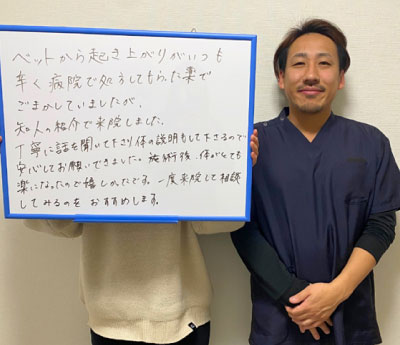 ベットから起き上がりがいつも
辛く病院で処方してもらった薬で
ごまかしていましたが、
知人の紹介で来院しました。
丁寧に話を聞いて下さり体の説明もして下さるので
安心してお願いできました。施術後、体がとても
楽になったので嬉しかったです。一度来院して相談
してみるのをおすすめします。